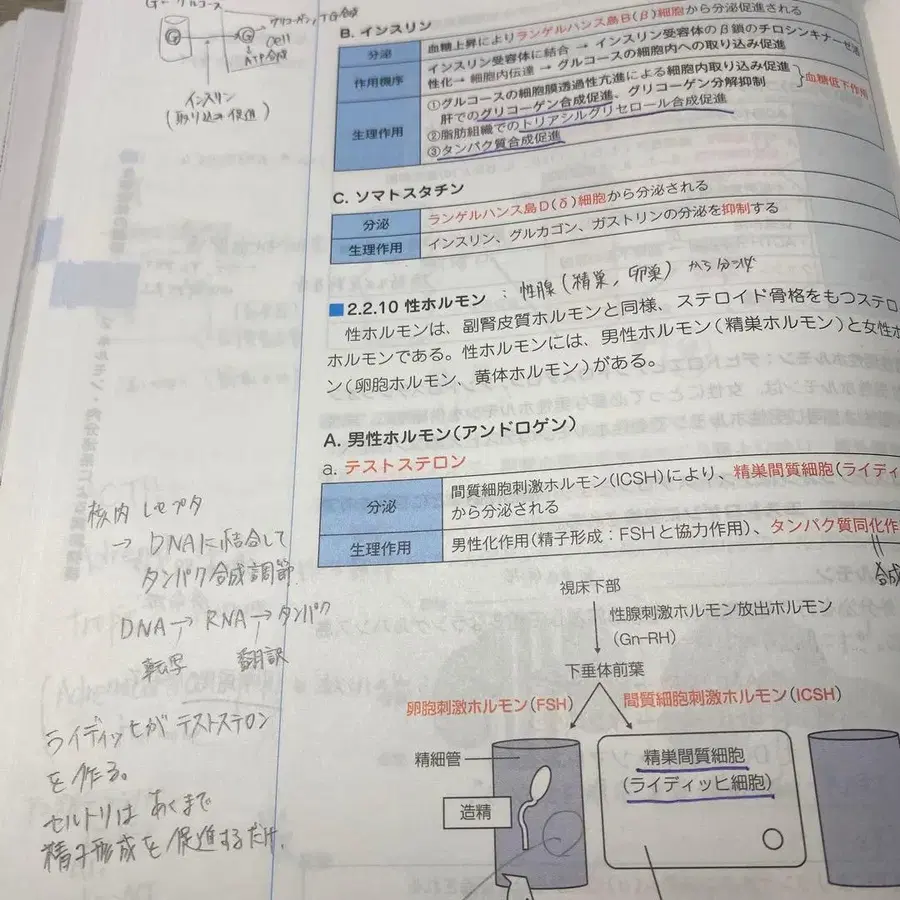 G- グルコース
グリコーゲン, TG合成
G
G
Cell
ATP合成
インスリン
(取り込み促進)
B. インスリン
分泌
血糖上昇によりランゲルハンス島B(β)細胞から分泌促進される
作用機序
インスリン受容体に結合 → インスリン受容体のβ鎖のチロシンキナーゼ活
性化 → 細胞内伝達 → グルコースの細胞内への取り込み促進
生理作用
①グルコースの細胞膜透過性亢進による細胞内取り込み促進
肝でのグリコーゲン合成促進、グリコーゲン分解抑制
②脂肪組織でのトリアシルグリセロール合成促進
③タンパク質合成促進
血糖低下作用
C. ソマトスタチン
分泌
ランゲルハンス島D(δ)細胞から分泌される
生理作用
インスリン、グルカゴン、ガストリンの分泌を抑制する
■2.2.10 性ホルモン : 性腺(精巣, 卵巣) から分泌
性ホルモンは、副腎皮質ホルモンと同様、ステロイド骨格をもつステロ
ホルモンである。性ホルモンには、男性ホルモン(精巣ホルモン)と女性ホ
ン(卵胞ホルモン、黄体ホルモン)がある。
A. 男性ホルモン(アンドロゲン)
a. テストステロン
分泌
間質細胞刺激ホルモン(ICSH)により、精巣間質細胞(ライディ
から分泌される
生理作用
男性化作用(精子形成:FSHと協力作用)、タンパク質同化作
合成
核内レセプタ
→ DNAに結合して
タンパク合成調節
DNA → RNA → タンパク
転写 翻訳
ライディッヒがテストステロン
を作る。
セルトリはあくまで
精子形成を促進するだけ.
視床下部
性腺刺激ホルモン放出ホルモン
(Gn-RH)
下垂体前葉
卵胞刺激ホルモン(FSH)
間質細胞刺激ホルモン(ICSH)
精細管
造精
精巣間質細胞
(ライディッヒ細胞)